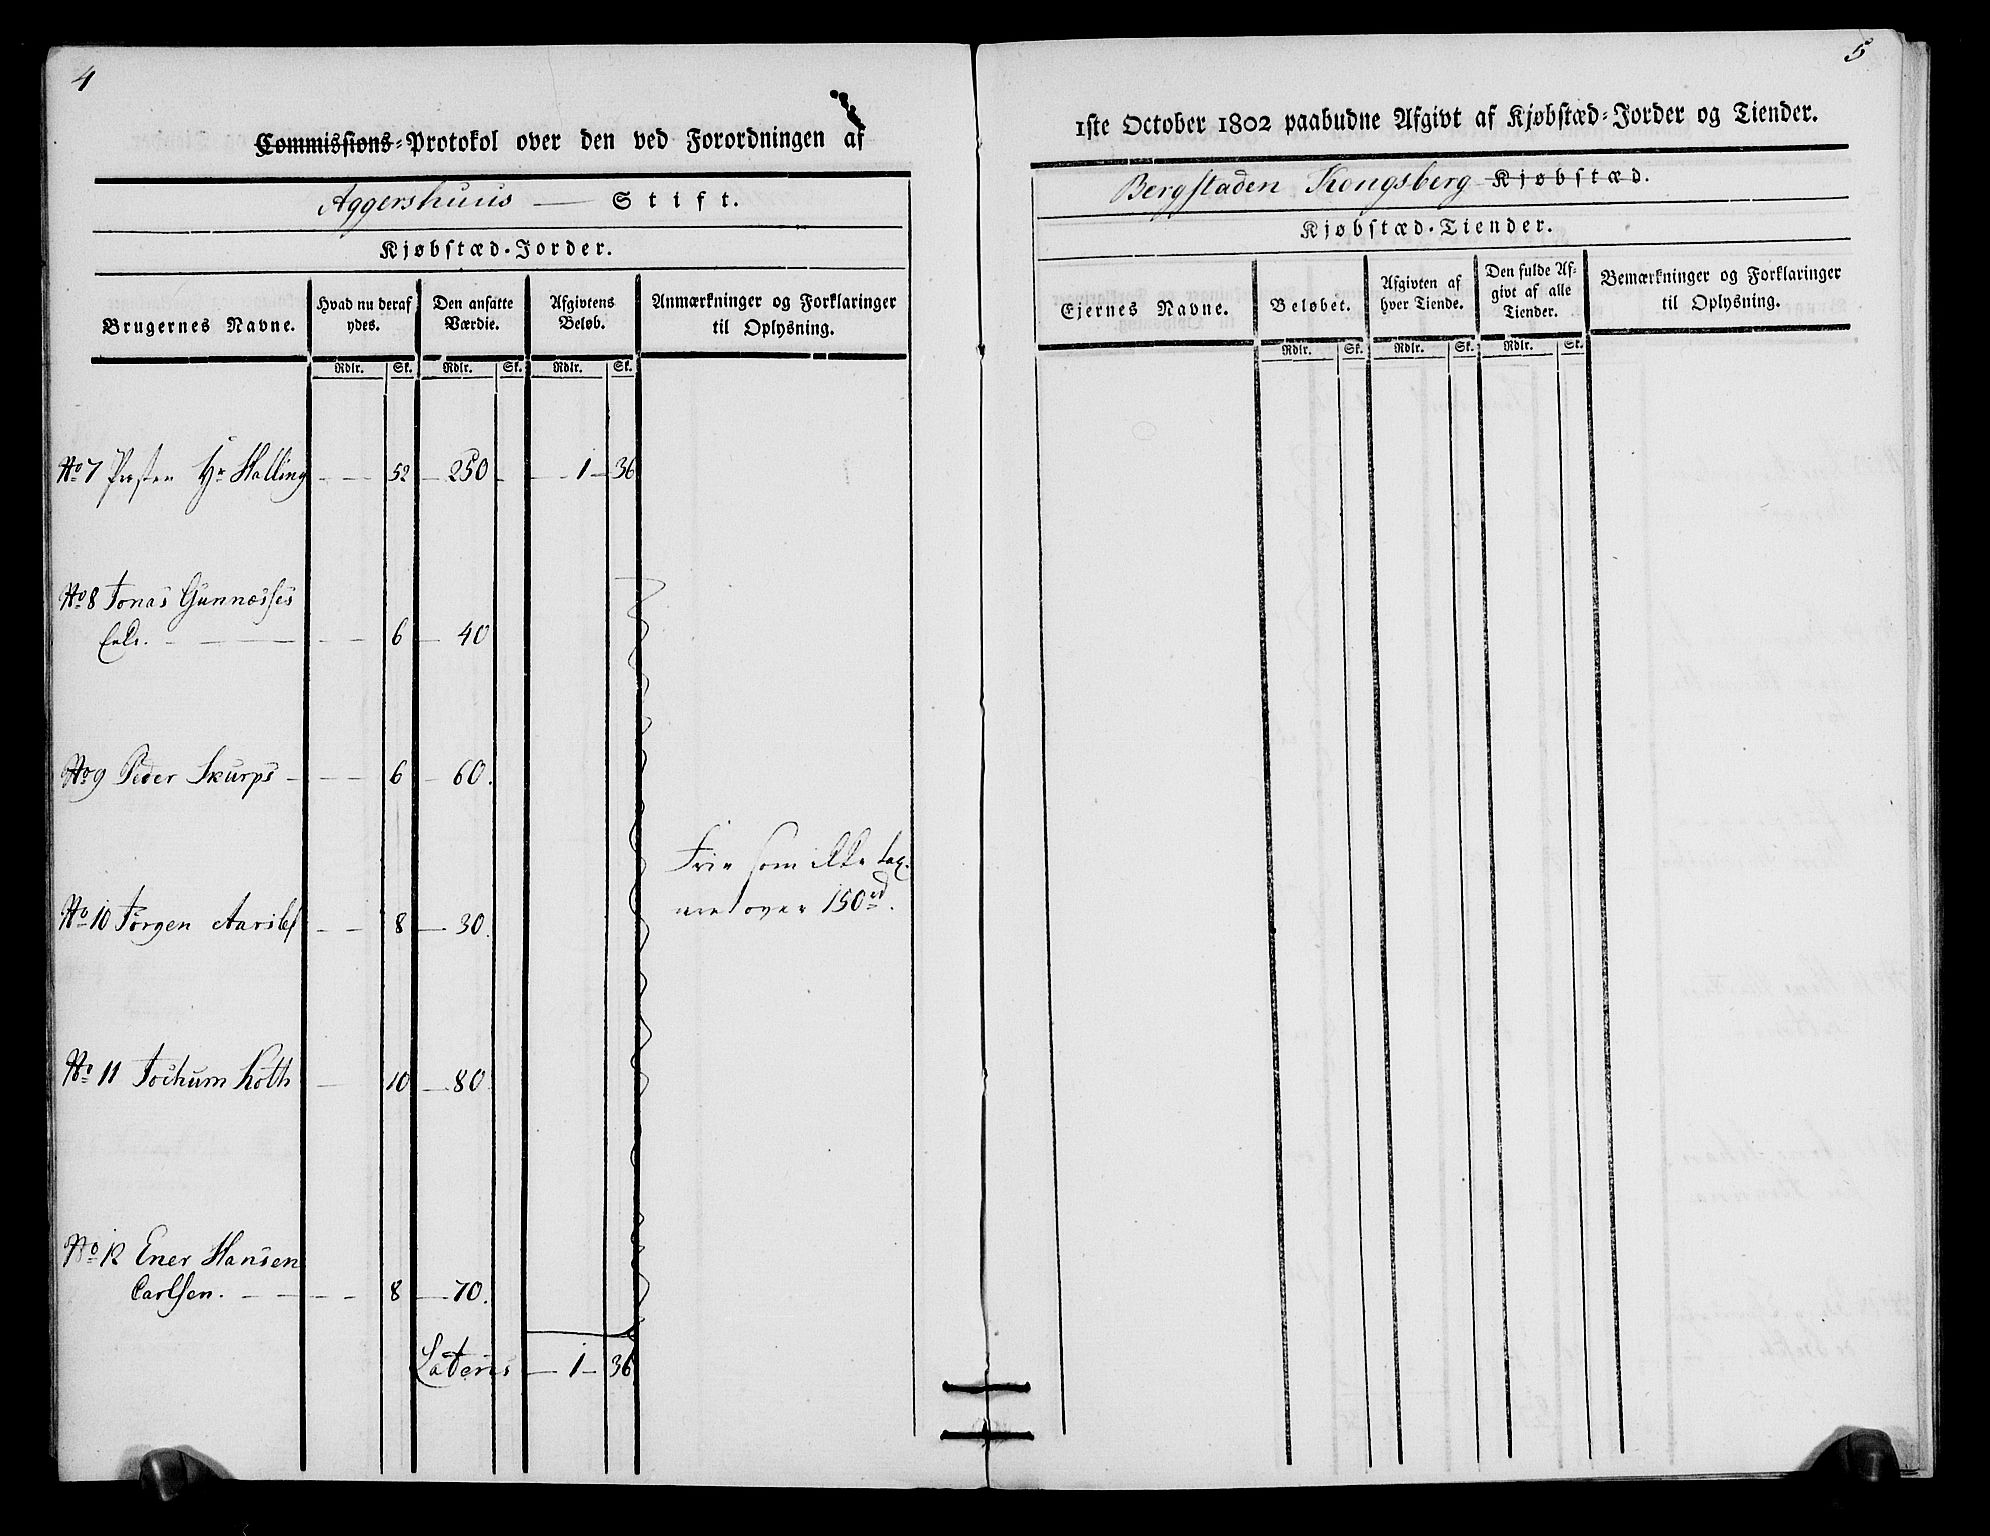 4
Commissions-Protokol over den ved Forordningen af
Aggershuus — Stift.
Kjøbstæd-Jorder.
Brugernes Navne.
Hvad nu deraf
ydes.
Den ansatte
Værdie.
Afgivtens
Beløb.
Anmærkninger og Forklaringer
til Oplysning.
Rdlr. Sk. Rdlr. Sk. Rdlr. Sk.
No 7 Præsten Hr Halling — — 52 — 250 — — 1 — 36
No 8 Jonas Gunnæsses
— — 6 — 40
No 9 Peder Skurps — — — 6 — 60.
Frie som ikke tax-
eret over 150 rd.
No 10 Jørgen — — 8 — 30.
No 11 Jochum Koth — 10 — 80
No 12 Ener Hansen
Carlsen. — — — — 8 — 70.
Lateris — 1 — 36
5
1ste October 1802 paabudne Afgivt af Kjøbstæd-Jorder og Tiender.
Bergstaden Kongsberg Kjøbstæd.
Kjøbstæd-Tiender.
Ejernes Navne.
Beløbet.
Afgivten af
hver Tiende.
Den fulde Af-
givt af alle
Tiender.
Bemærkninger og Forklaringer
til Oplysning.
Rdlr. Sk. Rdlr. Sk. Rdlr. Sk.